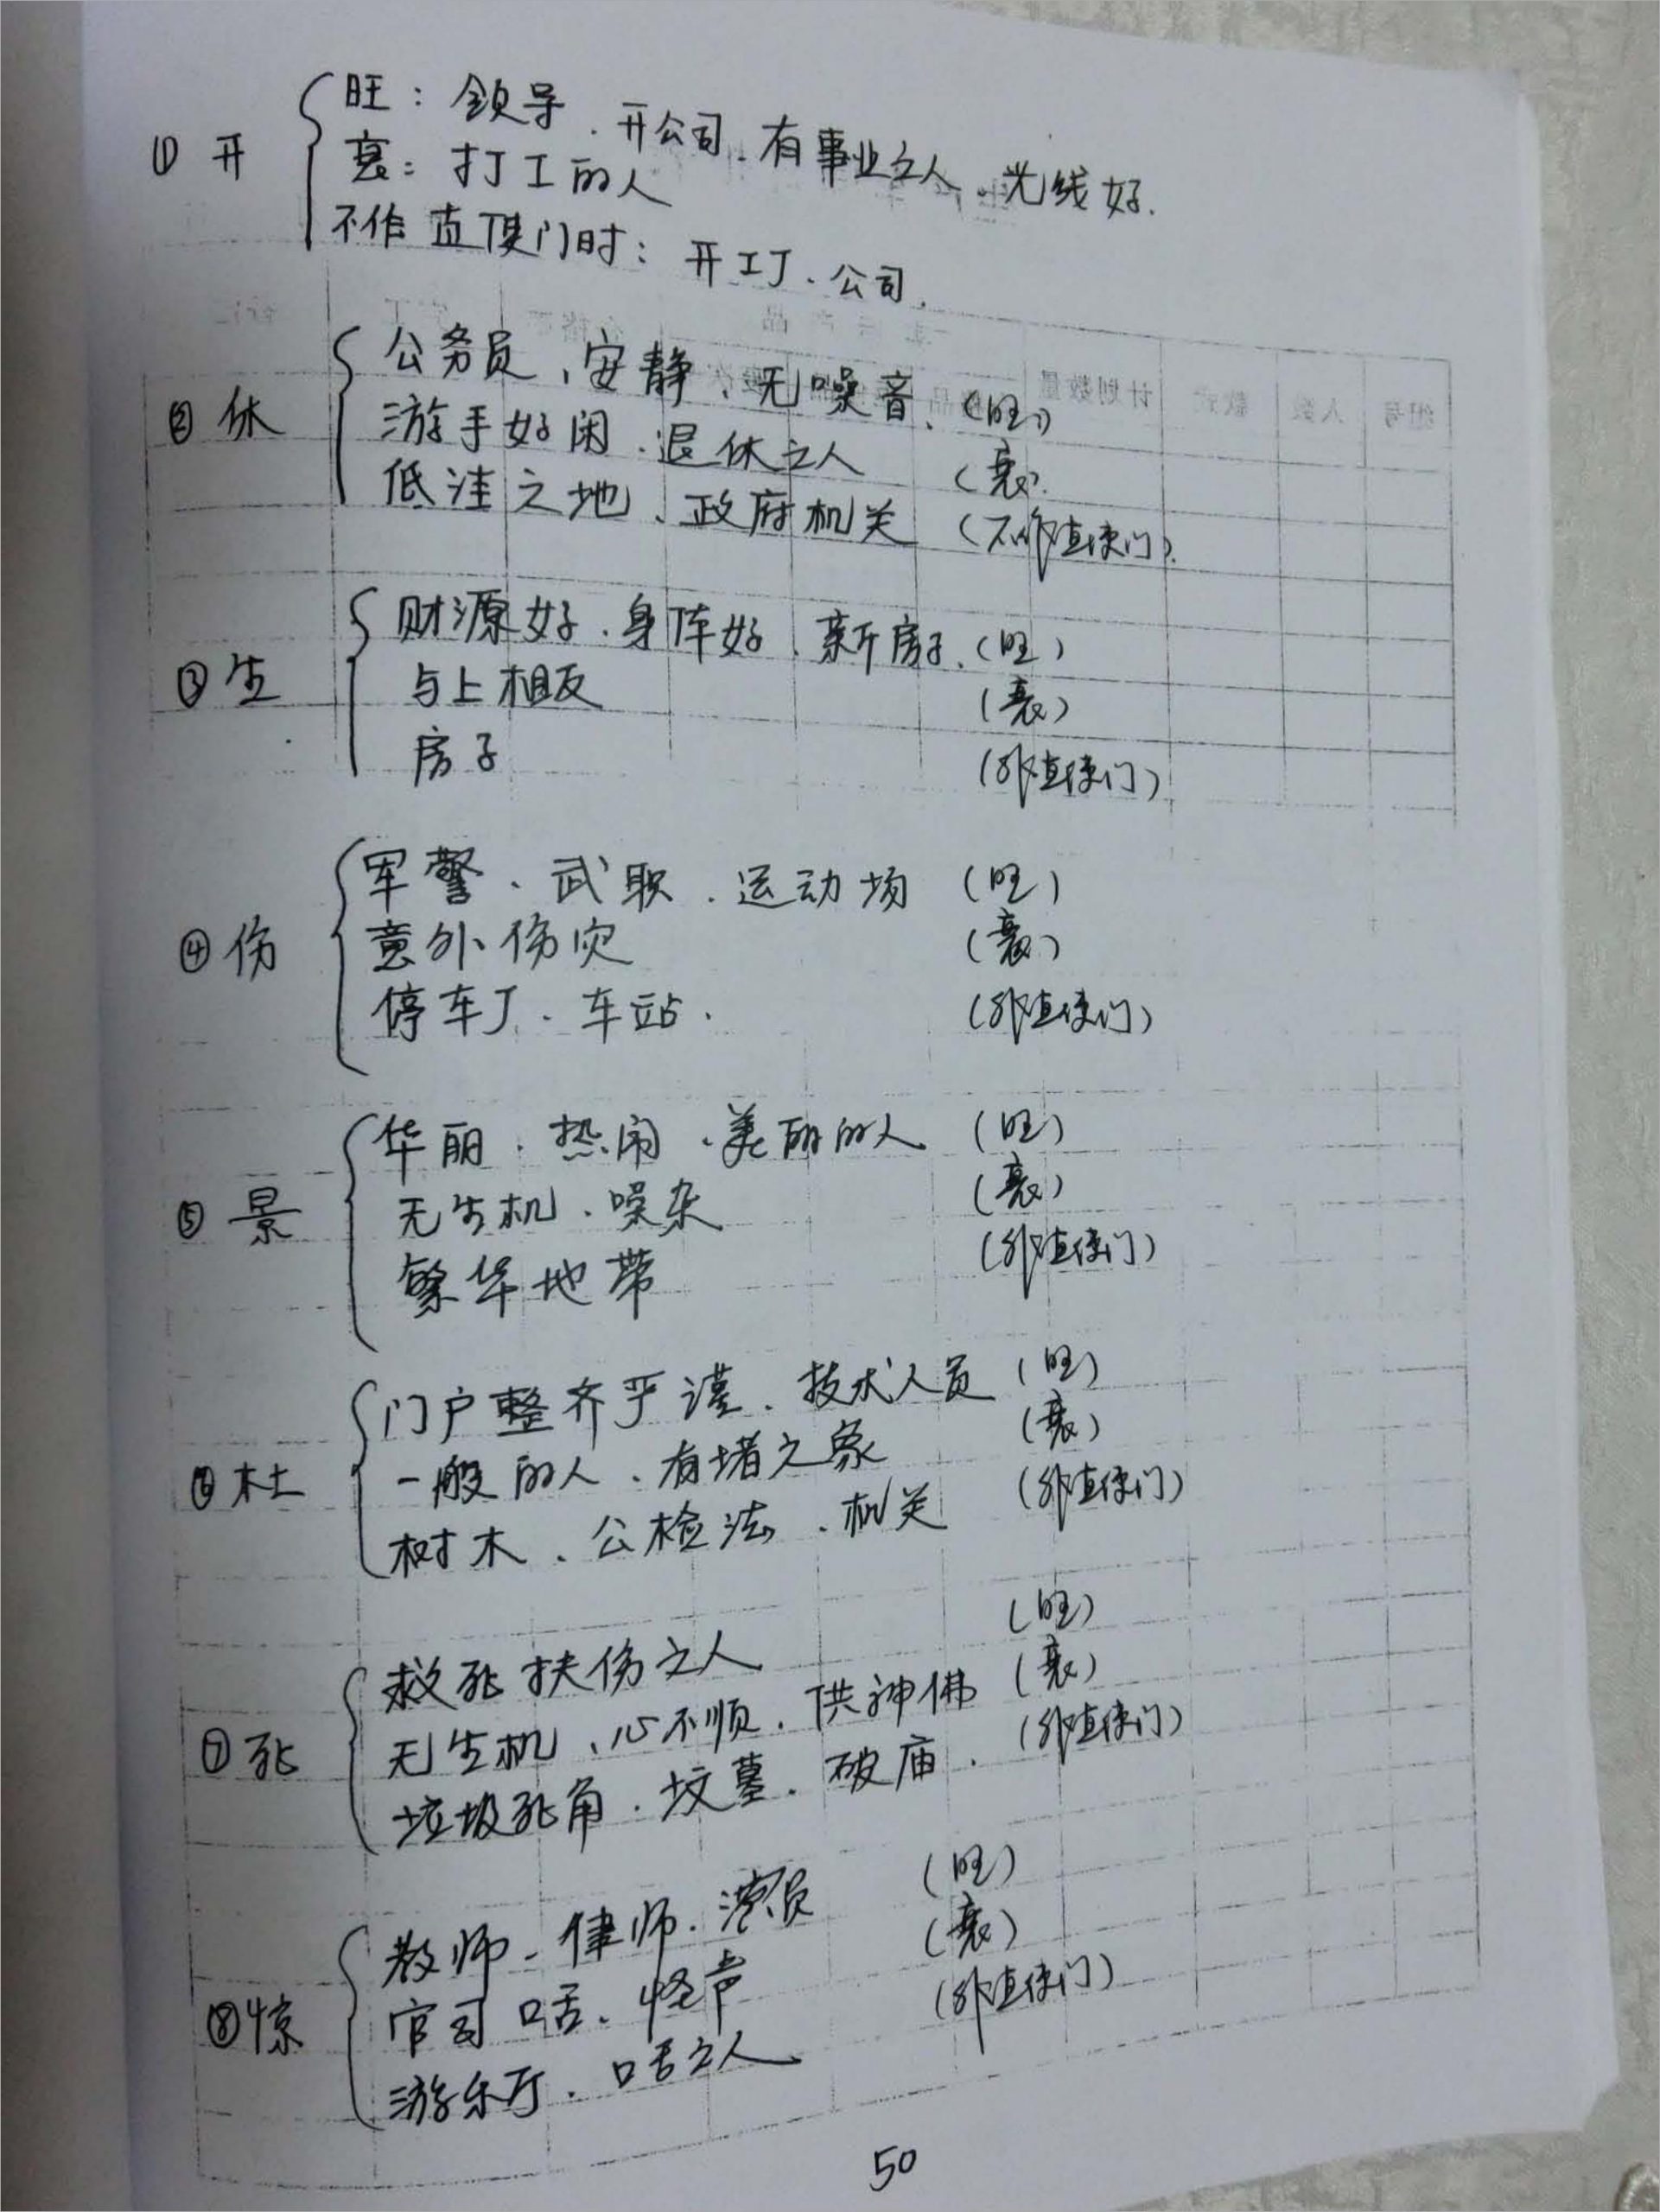 ① 开
旺：领导．开公司．有事业之人．光线好．
衰：打工的人
不作直使门时：开工厂、公司．
② 休
公务员、安静、无噪音、（旺）
游手好闲．退休之人（衰）．
低洼之地、政府机关（不作直使门）．
③ 生
财源好．身体好．新房子．（旺）
与上相反（衰）
房子（非直使门）
④ 伤
军警、武职．运动场（旺）
意外伤灾（衰）
停车厂、车站．（非直使门）
⑤ 景
华丽．热闹．美丽的人（旺）
无生机、噪杂（衰）
繁华地带（非直使门）
⑥ 杜
门户整齐严谨．技术人员（旺）
一般的人．有堵之象（衰）
树木、公检法．机关（非直使门）
⑦ 死
救死扶伤之人（旺）
无生机、心不顺．供神佛（衰）
垃圾死角．坟墓．破庙．（非直使门）
⑧ 惊
教师．律师．演员（旺）
官司口舌．怪声（衰）
游乐厅．口舌之人（非直使门）
50
组号
人数
款式
计划数量